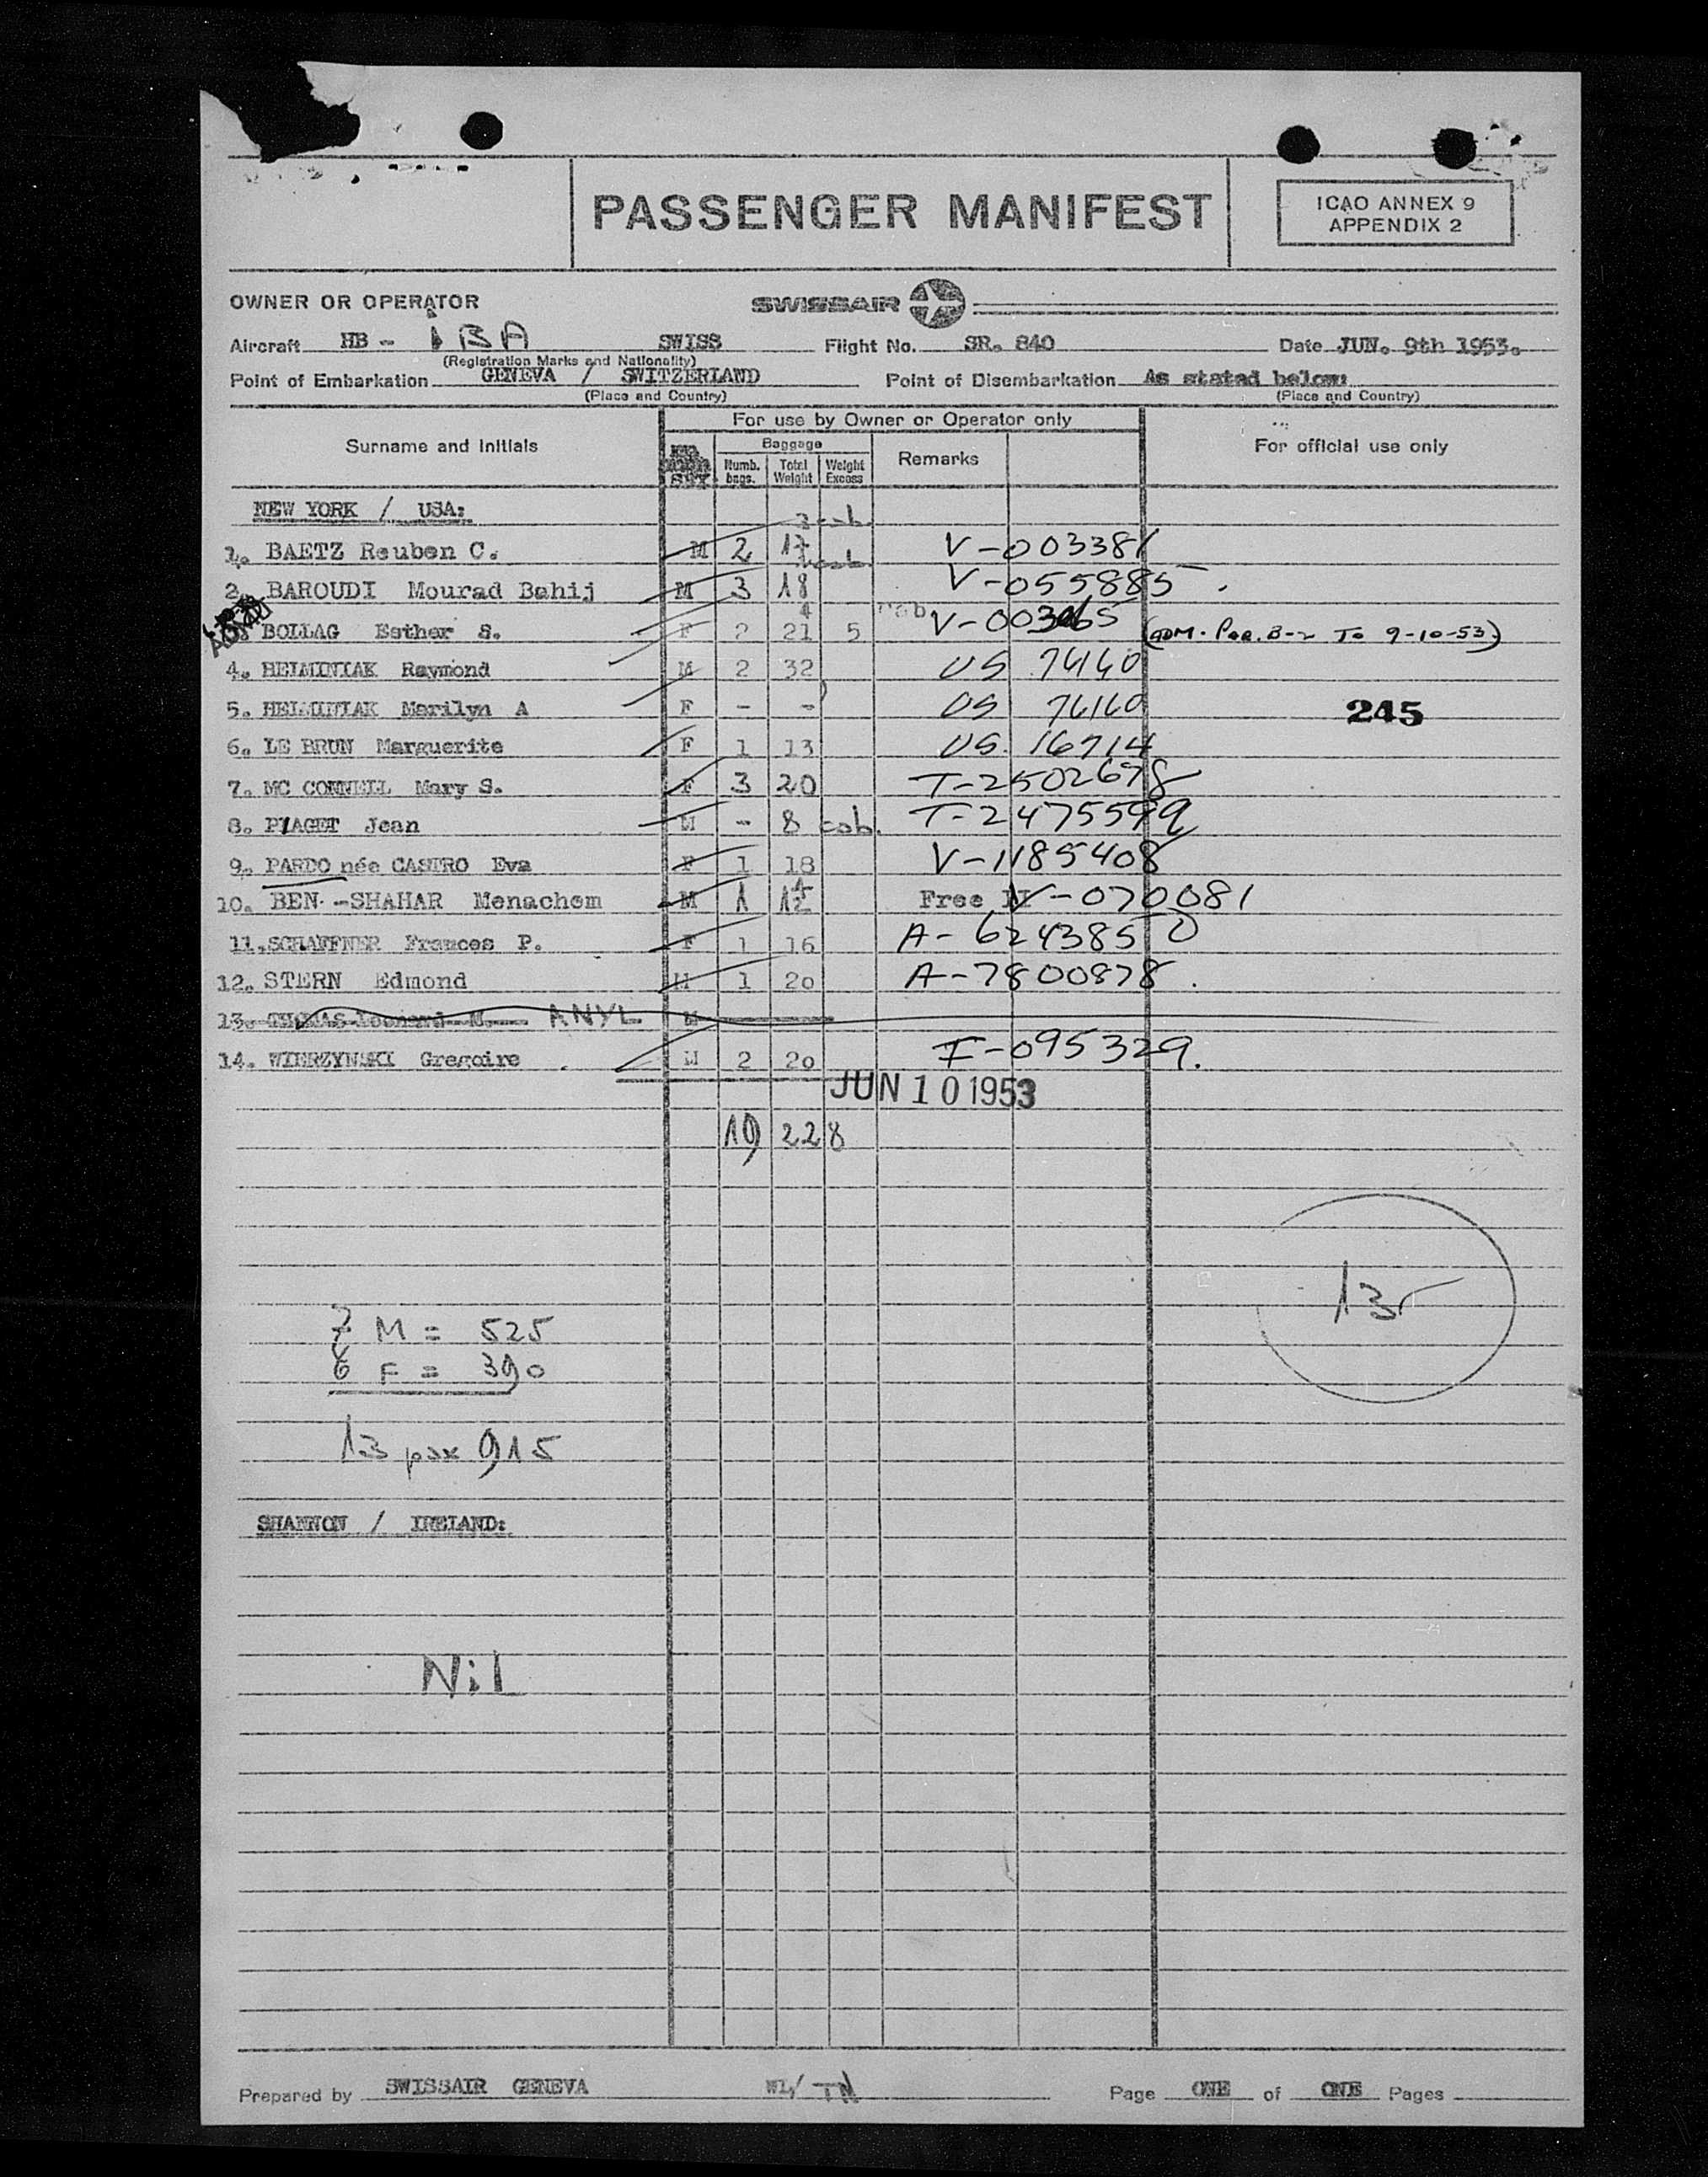 PASSENGER MANIFEST
ICAO ANNEX 9
APPENDIX 2
OWNER OR OPERATOR SWISSAIR
Aircraft HB - IBA SWISS Flight No. SR. 840 Date JUN. 9th 1953.
(Registration Marks and Nationality)
Point of Embarkation GENEVA / SWITZERLAND Point of Disembarkation As stated below:
(Place and Country) (Place and Country)
For use by Owner or Operator only
Surname and Initials SEX Baggage Remarks For official use only
Numb. bags. Total Weight Weight Excess
NEW YORK / USA:
3 cab.
1. BAETZ Reuben C. M 2 17 V-003381
cab
2. BAROUDI Mourad Bahij M 3 18 V-055885
4 cab
3. BOLLAG Esther S. F 2 21 5 V-003065 (ADM. Por. B-2 To 9-10-53)
4. HELMINIAK Raymond M 2 32 US 76160
5. HELMINIAK Marilyn A F - - US 76160 245
6. LE BRUN Marguerite F 1 13 US. 16714
7. MC CONNELL Mary S. F 3 20 T-2502678
8. PIAGET Jean M - 8 cab. T-2475599
9. PARDO née CASTRO Eva F 1 18 V-1185408
10. BEN-SHAHAR Menachem M 1 Free V-070081
11. SCHAFFNER Frances P. F 1 16 A-6243850
12. STERN Edmond M 1 20 A-7800878.
13. THOMAS Leonard M. ANYL M
14. WIERZYNSKI Gregoire M 2 20 I-095329.
JUN 10 1953
19 228
13
7 M = 525
6 F = 390
13 pax 915
SHANNON / IRELAND:
Nil
Prepared by SWISSAIR GENEVA WL/ TN Page ONE of ONE Pages